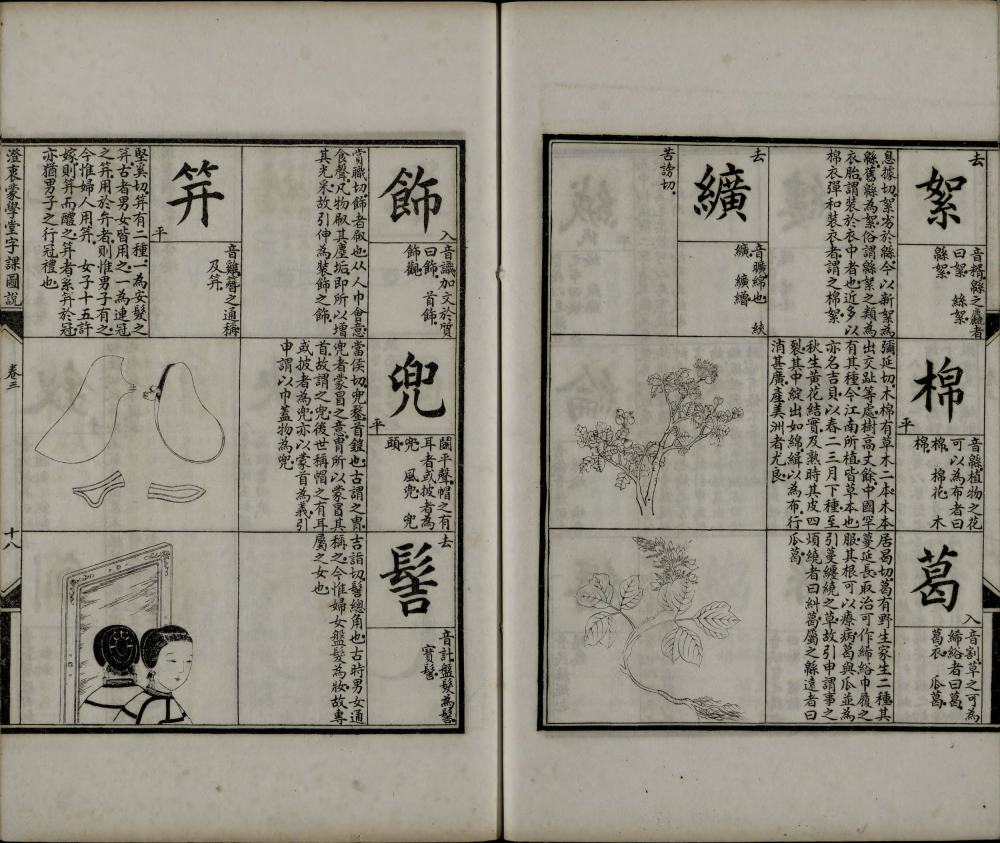 絮
去
音稰緜之麤者
曰絮　絲絮
緜絮
息據切絮劣於緜今以新絮為
緜舊緜為絮俗謂緜絮之類為
衣胎謂裝於衣中者也近多以
棉衣彈和裝衣者謂之棉絮
纊
去
音曠綿也　絖
纊　纊繒
苦謗切
棉
平
音緜植物之花
可以為布者曰
棉　棉花　木
棉
彌延切木棉有草木二本木本
出交趾等處樹高丈餘中國罕
有其種今江南所植皆草本也
亦名吉貝以春二三月下種至
秋生黃花結實及熟時其皮四
裂其中綻出如綿緝以為布行
消甚廣產美洲者尤良
葛
入
音割草之可為
絺綌者曰葛
葛衣　瓜葛
居曷切葛有野生家生二種其
蔓延長取治可作絺綌巾履之
服其根可以療病葛與瓜並為
引蔓纏繞之草故引申謂事之
煩繞者曰糾葛屬之緜遠者曰
瓜葛
飾
入
音識加文於質
曰飾　首飾
飾觀
賞職切飾者㕞也从人巾會意
食聲凡物㕞其塵垢即所以增
其光采故引伸為裝飾之飾
笄
平
音雞簪之通稱
及笄
堅奚切笄有二種一為安髮之
笄古者男女皆用之一為連冠
之笄用於弁者則惟男子有之
今惟婦人用笄　女子十五許
嫁則笄而醴之笄者系笄於冠
亦猶男子之行冠禮也
兜
平
鬭平聲帽之有
耳者或披者為
兜　風兜　兜
頭
當侯切兜鍪首鎧也古謂之冑
兜者蒙冒之意冑所以蒙冒其
首故謂之兜後世稱帽之有耳
或披者為兜亦以蒙首為義引
申謂以巾蓋物為兜
髻
去
音計盤髮為髻
寶髻
吉詣切髻總角也古時男女通
稱之今惟婦女盤髮為妝故專
屬之女也
澄衷蒙學堂字課圖說
卷三
十八